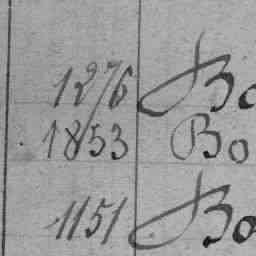 1276 Bo
1853 Bo
1151 Bo